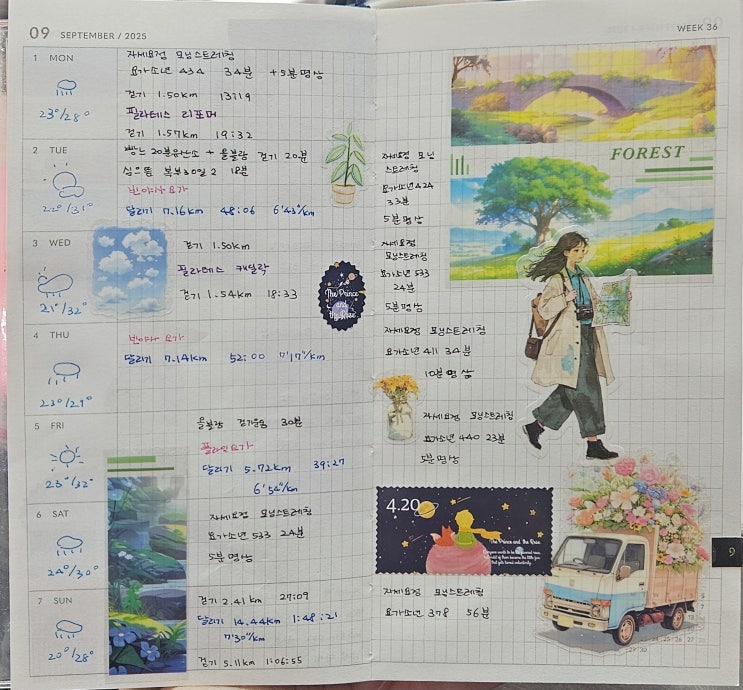 09 SEPTEMBER / 2025
1 MON
23°/28°
자세요정 모닝스트레칭
요가소년 434 34분 +5분명상
걷기 1.50km 13:19
필라테스 리포머
걷기 1.57km 19:32
2 TUE
22°/31°
빵느 20분유산소 + 올블랑 걷기 20분
심으뜸 복부30일2 18분
빈야사 요가
달리기 7.16km 48:06 6'43"/km
3 WED
21°/32°
걷기 1.50km
필라테스 캐딜락
걷기 1.54km 18:33
The Prince
and
the Rose
4 THU
23°/29°
빈야사 요가
달리기 7.14km 52:00 7'17"/km
5 FRI
23°/32°
올블랑 30분
플라잉요가
달리기 5.72km 39:27
6'54"/km
6 SAT
24°/30°
자세요정 모닝스트레칭
요가소년 533 24분
5분명상
7 SUN
20°/28°
걷기 2.41km 27:09
달리기 14.44km 1:48:21
7'30"/km
걷기 5.11km 1:06:55
WEEK 36
FOREST
자세요정 모닝
스트레칭
요가소년 424
33분
5분명상
자세요정
모닝스트레칭
요가소년 533
24분
5분명상
자세요정 모닝스트레칭
요가소년 411 34분
10분명상
자세요정 모닝스트레칭
요가소년 440 23분
5분명상
4.20
The Prince and the Rose
자세요정 모닝스트레칭
요가소년 378 56분
9
29 30